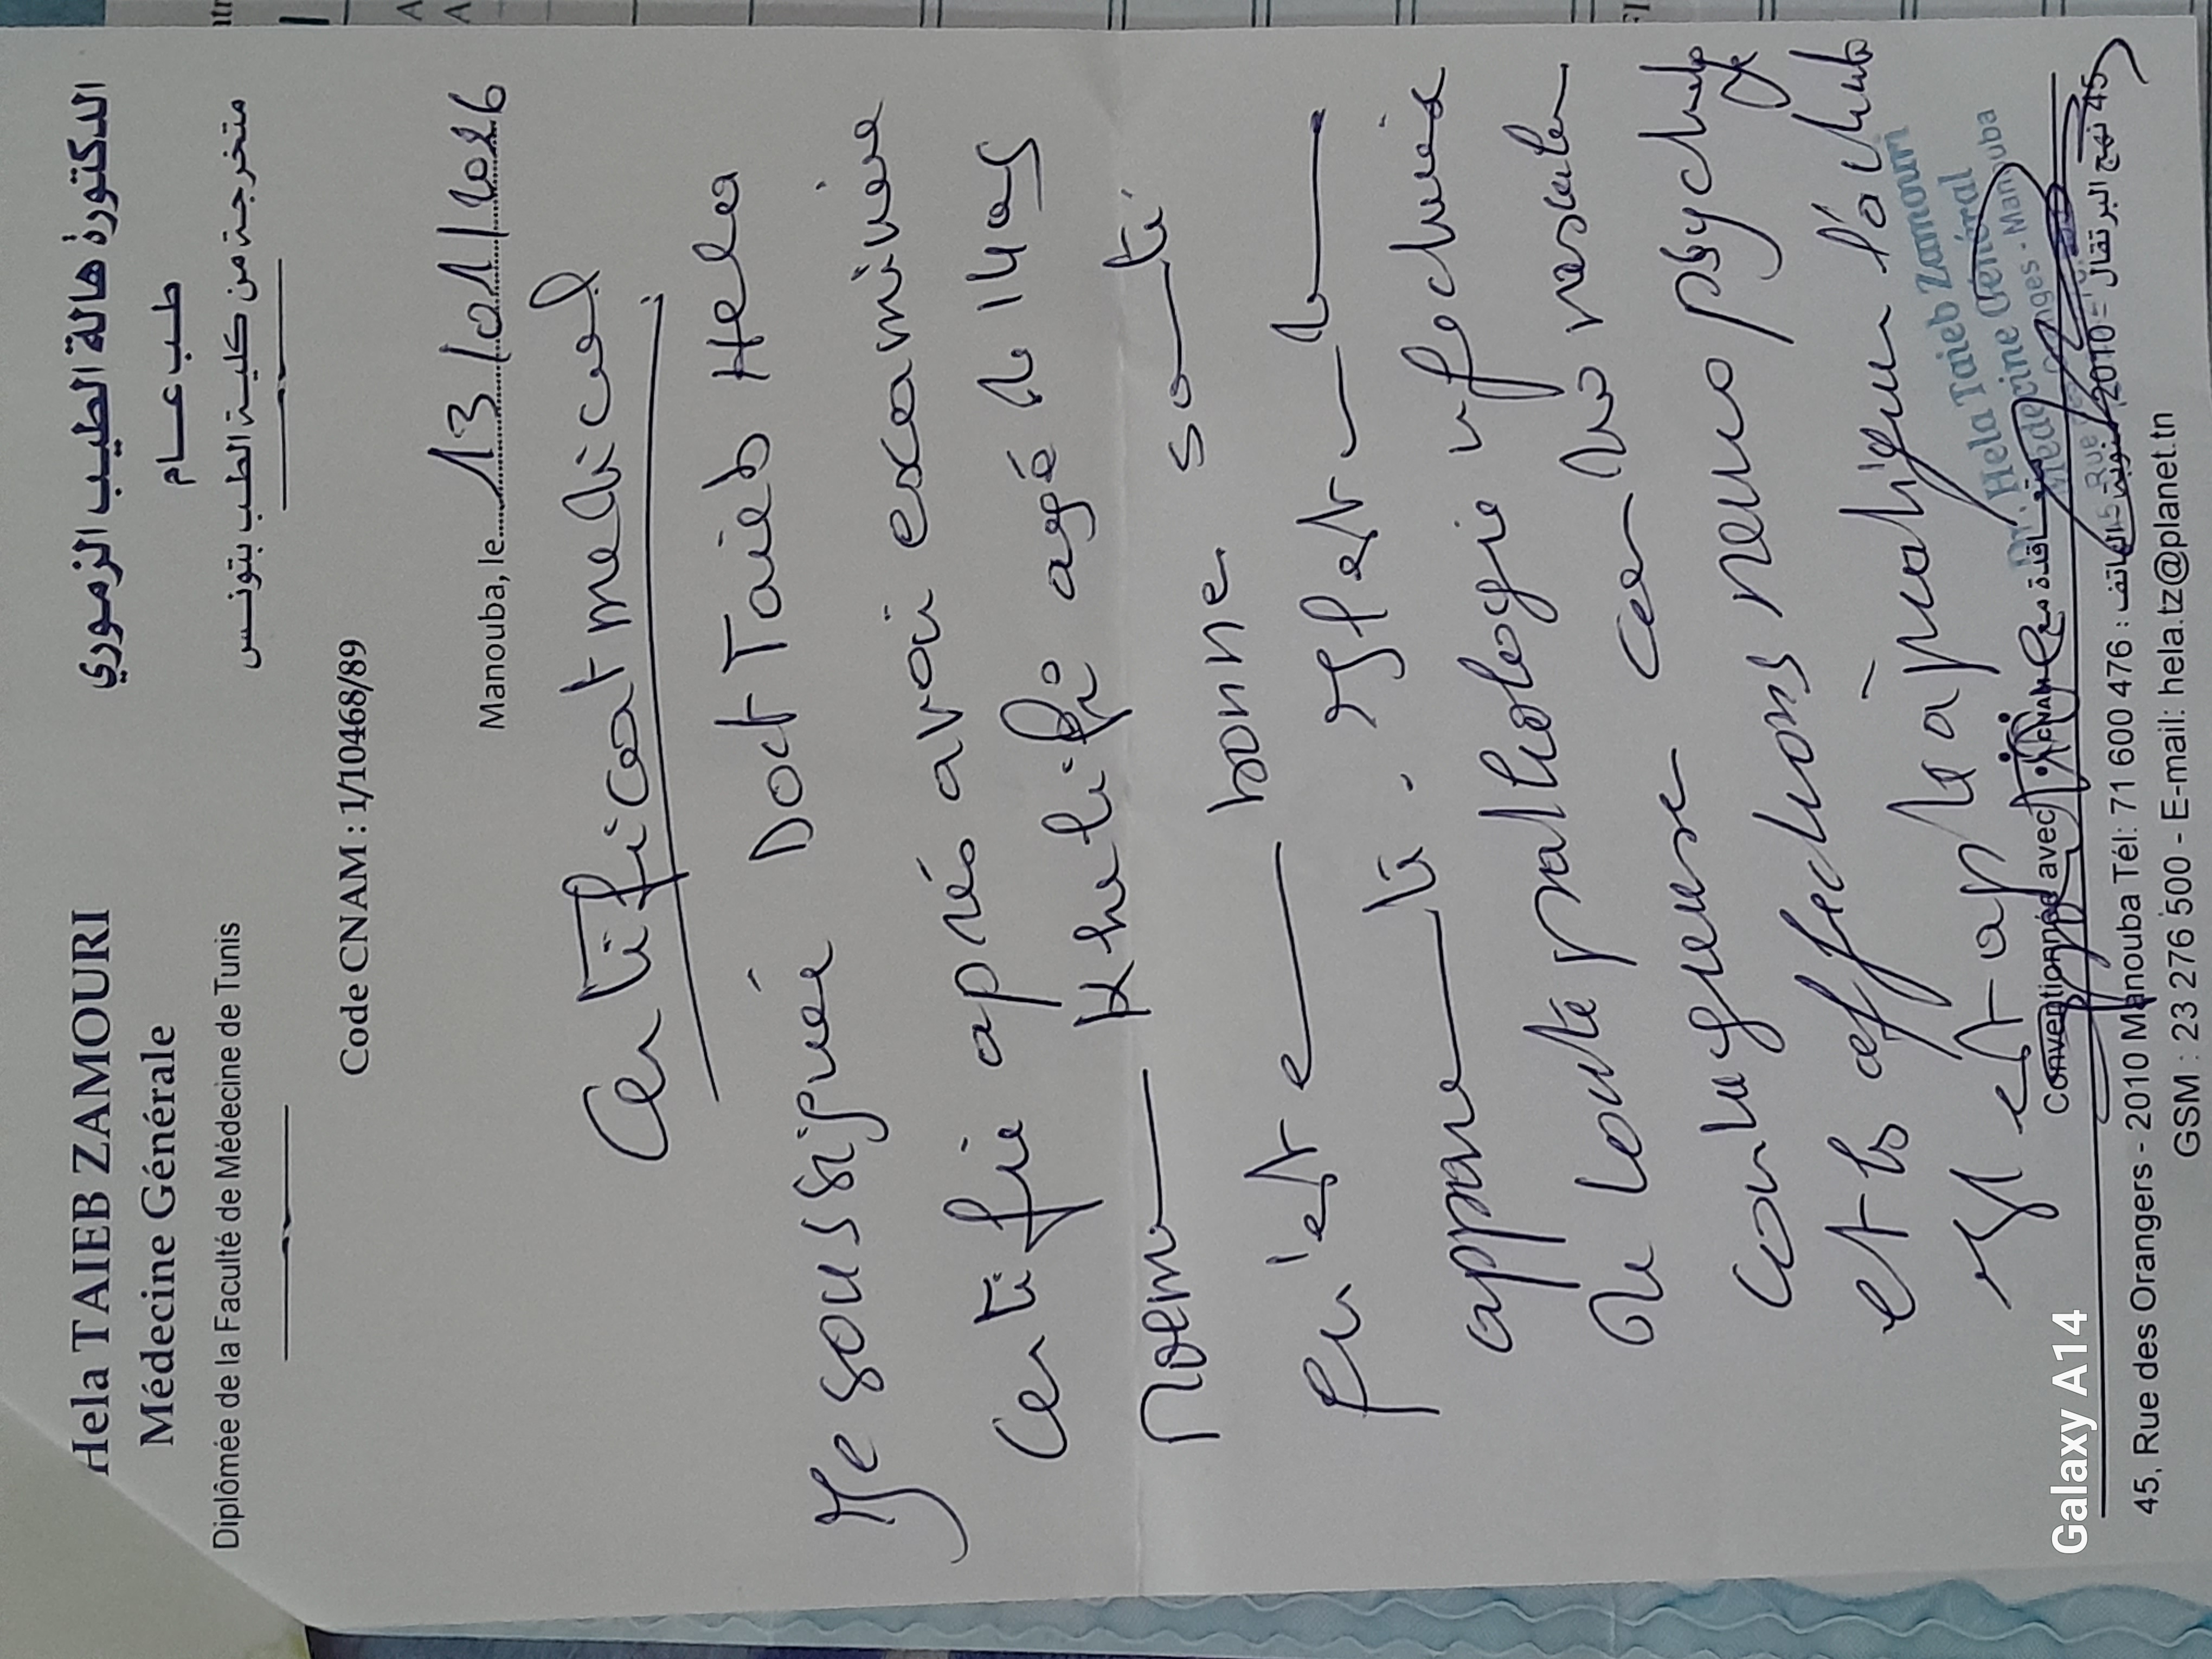 Hela TAIEB ZAMOURI
Médecine Générale
Diplômée de la Faculté de Médecine de Tunis
الدكتورة هالة الطيب الزموري
طب عام
متخرجة من كلية الطب بتونس
Code CNAM : 1/10468/89
Manouba, le 13/01/2026
Certificat medical
Je soussignée Doct Taieb Hela
Certifie après avoir examiner
Khelifi agé de 14 as
bonne santé
qu'est
apparente. Il est
de toute pathologie infectieuse
contagieuse cardio vasculaire
et ls affections neuro psychq
Il est apt à pratiquer
Dr. Hela Taieb Zamouri
Médecine Générale
Conventionnée avec CNAM متعاقدة مع
45, Rue des Orangers - 2010 Manouba Tél: 71 600 476 : الهاتف 2010 - نهج البرتقال 45
GSM : 23 276 500 - E-mail: hela.tz@planet.tn
Galaxy A14